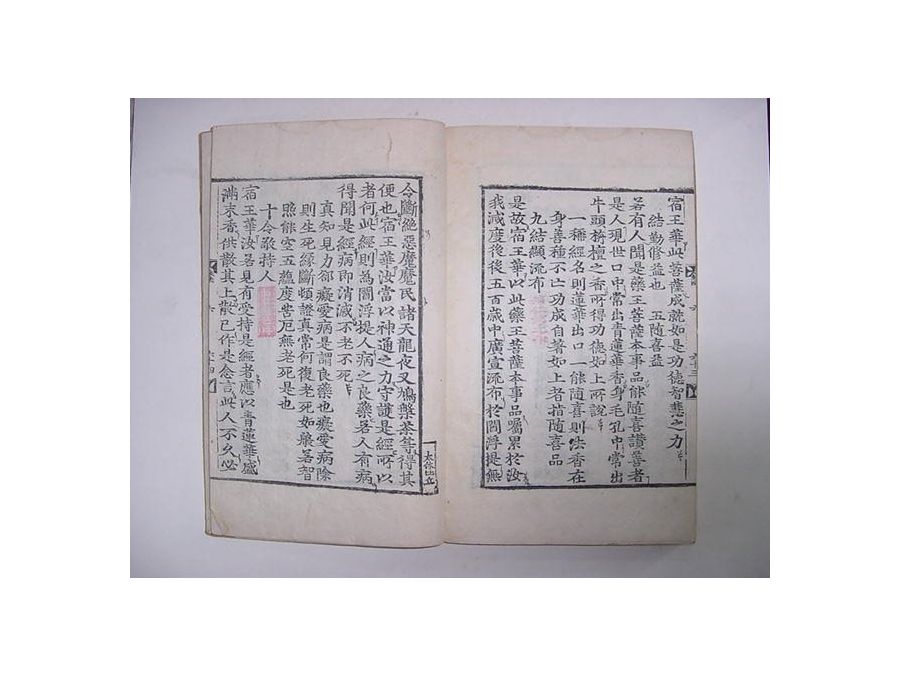 宿王華此菩薩成就如是功德智慧之力
結勤修益也　五隨喜益
若有人聞是藥王菩薩本事品能隨喜讃善者
是人現世口中常出青蓮華香身毛孔中常出
牛頭栴檀之香所得功德如上所說
一稱經名則蓮華出口一能隨喜則法香在
身善種不亡功成自著如上者指隨喜品
九結顯流布
是故宿王華以此藥王菩薩本事品囑累於汝
我滅度後後五百歲中廣宣流布於閻浮提無
令斷絕惡魔魔民諸天龍夜叉鳩槃茶等得其
便也宿王華汝當以神通之力守護是經所以
者何此經則為閻浮提人病之良藥若人有病
得聞是經病即消滅不老不死
真知見力郤癡愛病是謂良藥也癡愛病除
則生死緣斷頓證真常何復老死如般若智
照能空五蘊度苦厄無老死是也
十令敬持人
宿王華汝若見有受持是經者應以青蓮華盛
滿末香供散其上散已作是念言此人不久必